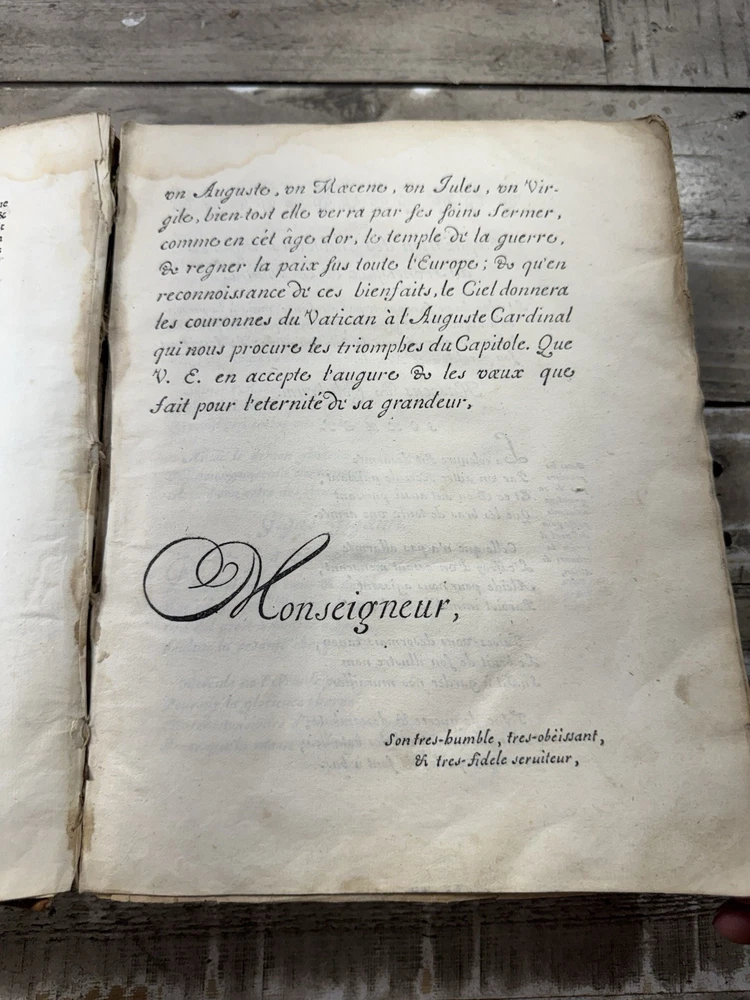 vn Auguste, vn Mæcene, vn Jules, vn Vir-
gile, bien-tost elle verra par ses soins fermer,
comme en cét âge d'or, le temple de la guerre,
& regner la paix sus toute l'Europe; & qu'en
reconnoissance de ces bienfaits, le Ciel donnera
les couronnes du Vatican à l'Auguste Cardinal
qui nous procure les triomphes du Capitole. Que
V. E. en accepte l'augure & les vœux que
fait pour l'eternité de sa grandeur,
Monseigneur,
Son tres-humble, tres-obëissant,
& tres-fidele seruiteur,